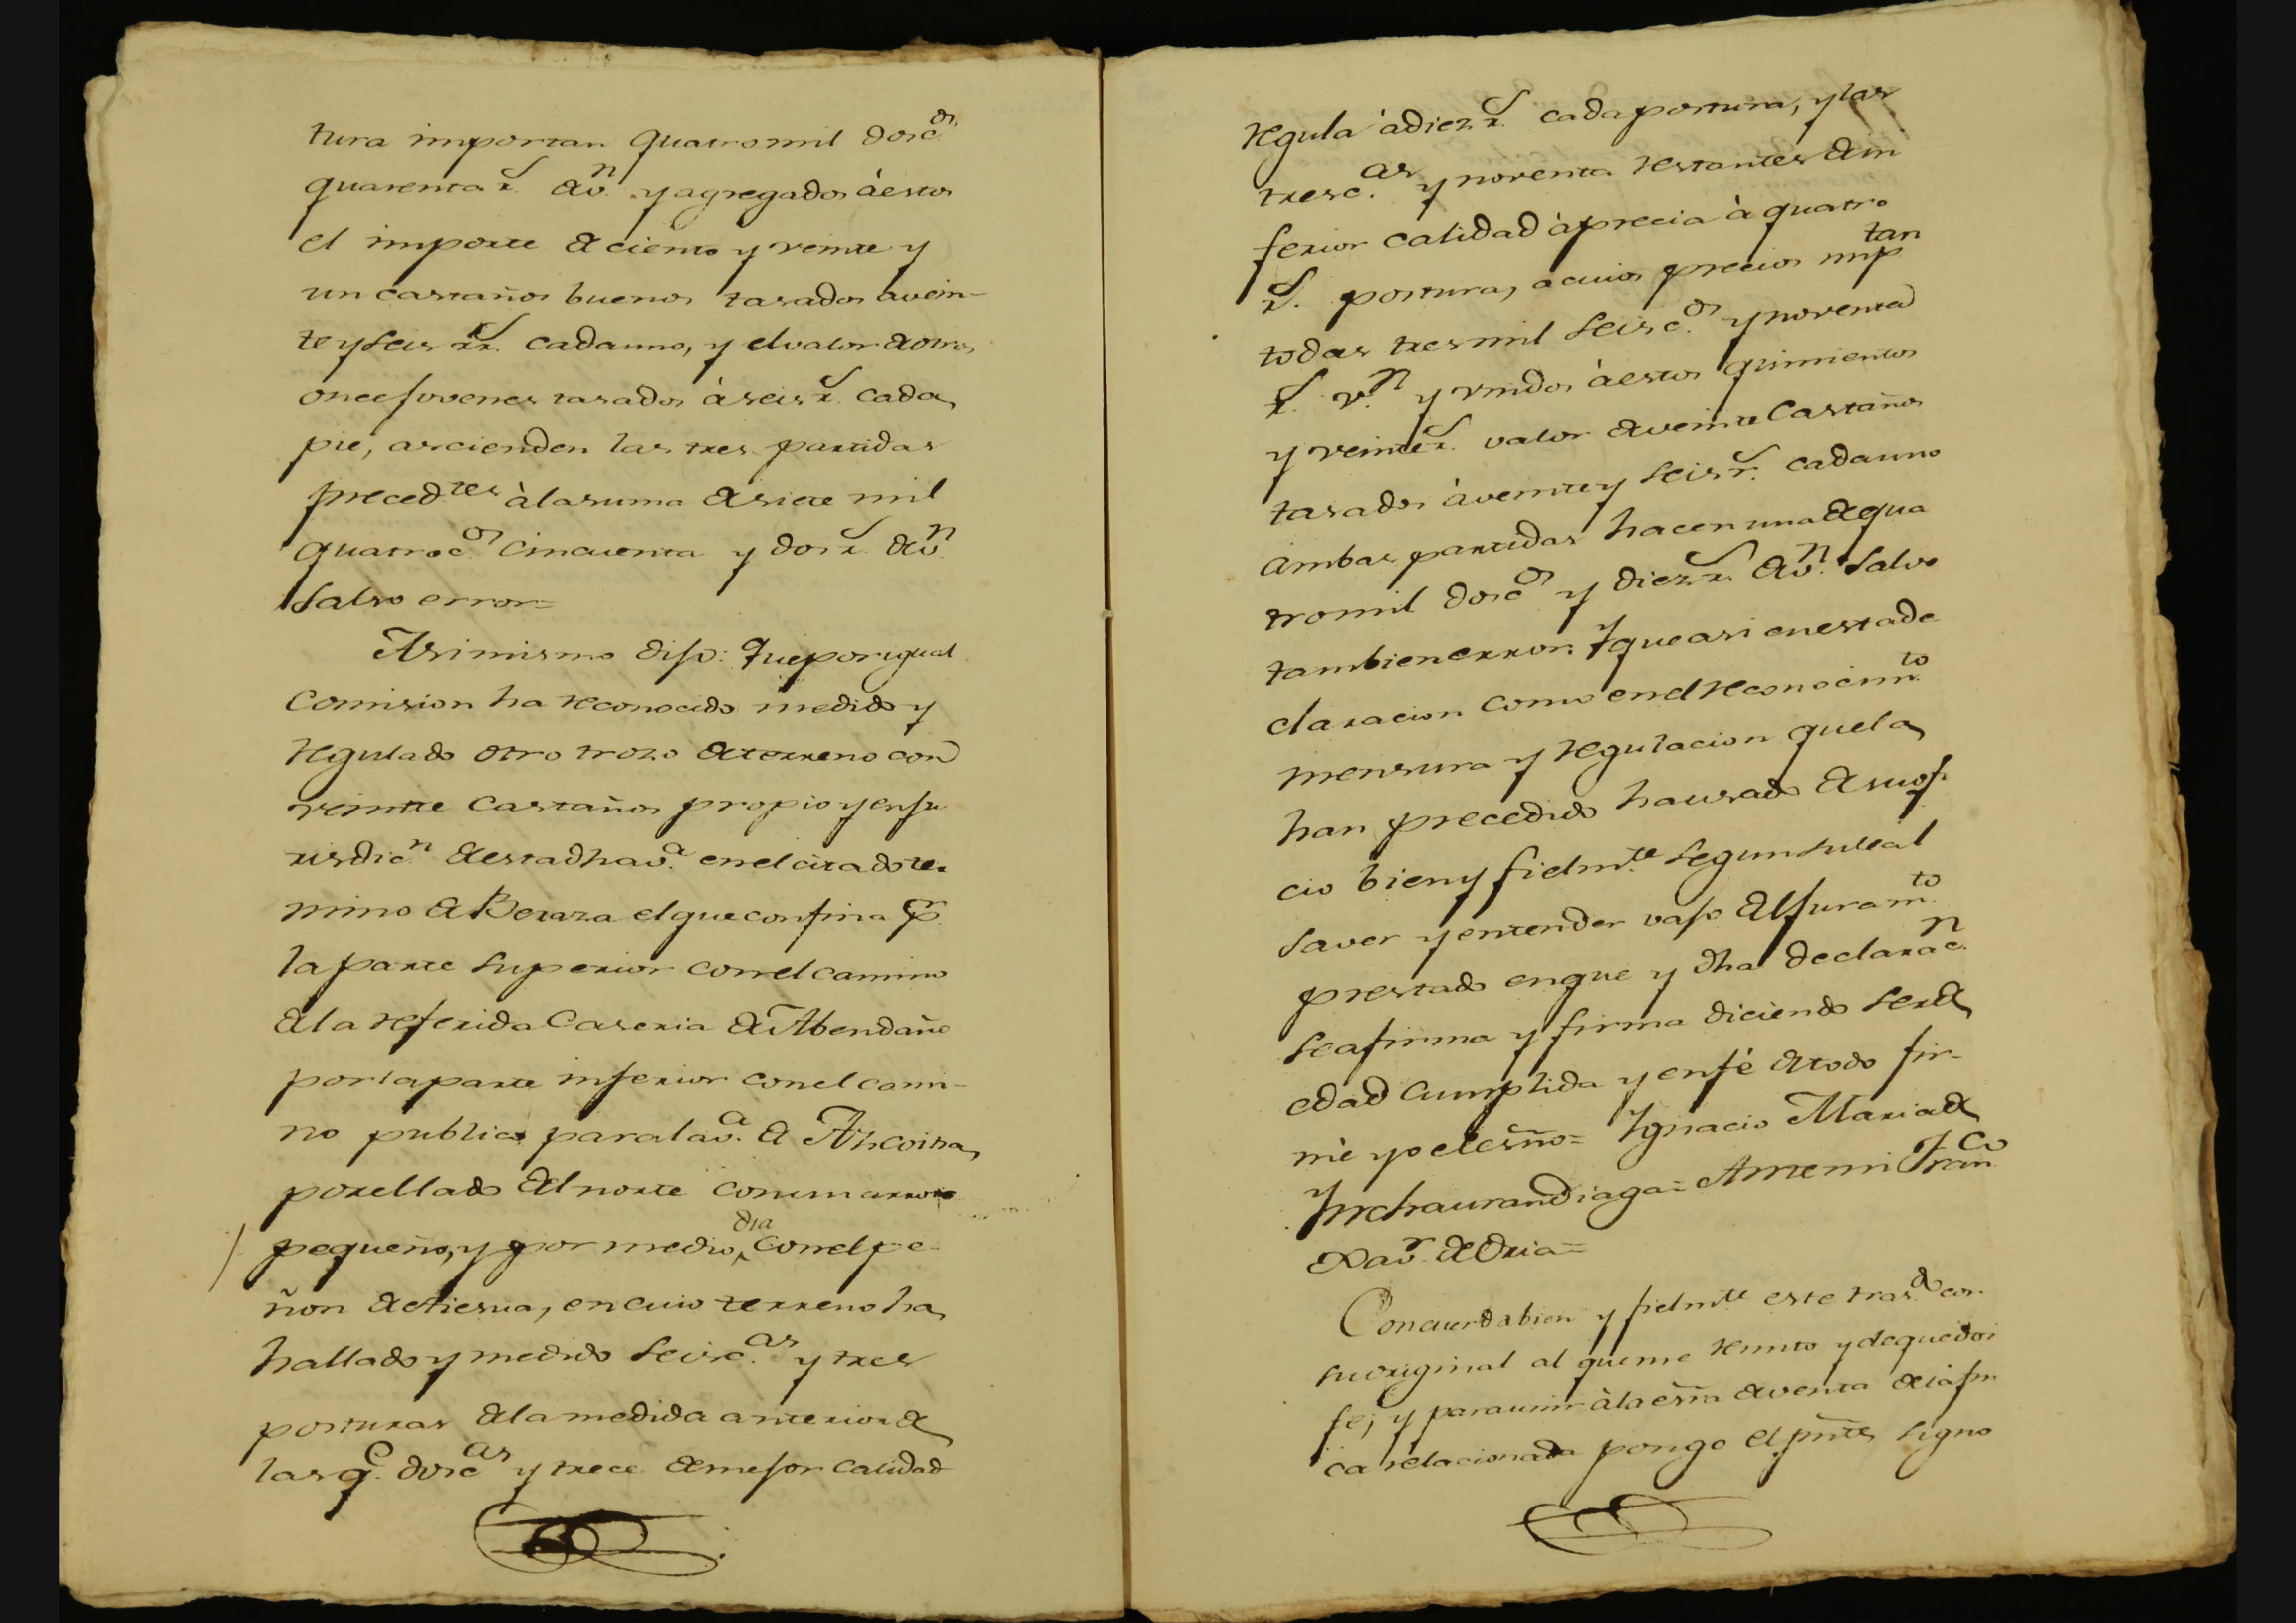 tura importan quatromil dosc.os
quarenta r.s de v.n y agregados à estos
el importe de ciento y veinte y
un castaños buenos tasados a vein-
te y seis rr.s cada uno, y el valor de otros
once jovenes tasados à seis r.s cada
pie, ascienden las tres partidas
preced.tes à la suma de siete mil
quatroc.os cincuenta y dos r.s de v.n
salvo error=
Asimismo dijo: Que por igual
comision ha reconocido medido y
regulado otro trozo de terreno con
veinte castaños propio y en ju
risdic.n de esta dha v.a en el citado ter
mino de Beraza el que confina p.r
la parte superior con el camino
de la referida Caseria de Abendaño
por la parte inferior con el cami-
no publico para la v.a de Azcoitia
por el lado del norte con un arroio
pequeño, y por mediodia con el pe-
ñon de Atiesua, en cuio terreno ha
hallado y medido seisc.as y tres
posturas de la medida anterior de
las q.e dosc.as y trece de mejor calidad
regula à diez r.s cada postura, y las
tresc.as y noventa restantes de in
ferior calidad àprecia à quatro
r.s postura, a cuios precios imptan
todas tres mil seisc.os y noventa
r.s v.n y vnidos à estos quinientos
y veinte r.s valor de veinte Castaños
tasados à veinte y seis r.s cada uno
ambas partidas hacen una de qua
tromil dosc.os y diez r.s de v.n salvo
tambien error. Y que asi en esta de
claracion como en el reconocim.to
mensura y regulacion que la
han precedido ha usado de su ofi
cio bien y fielm.te segun su leal
saver y entender vajo del juram.to
prestado en que y dha declarac.n
se afirma y firma diciendo ser de
edad cumplida y en fé de todo fir-
mè yo el esño= Ygnacio Maria de
Ynchaurandiaga= Ante mi Fran.co
Xav.r de Oria=
Concuerda bien y fielm.te este trasdo con
su original al que me remito y de que doi
fe; y para unir à la esra de venta de la fin
ca relacionada pongo el pnte signo